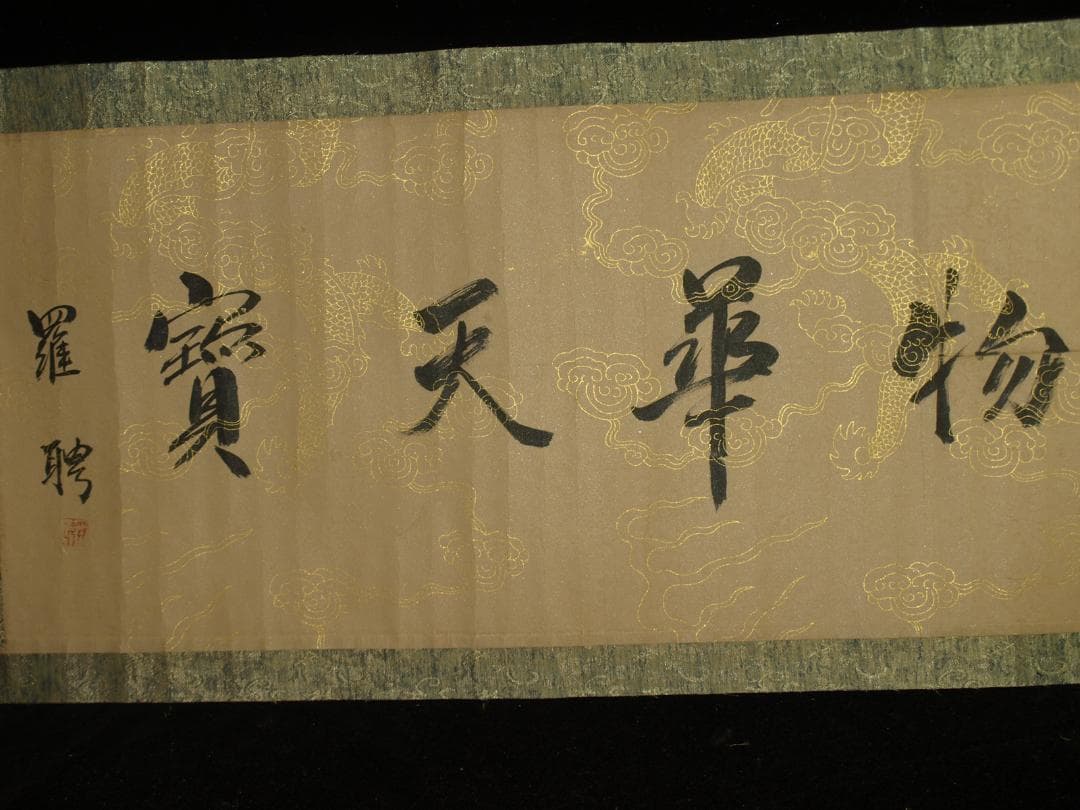 物華天寶
羅聘